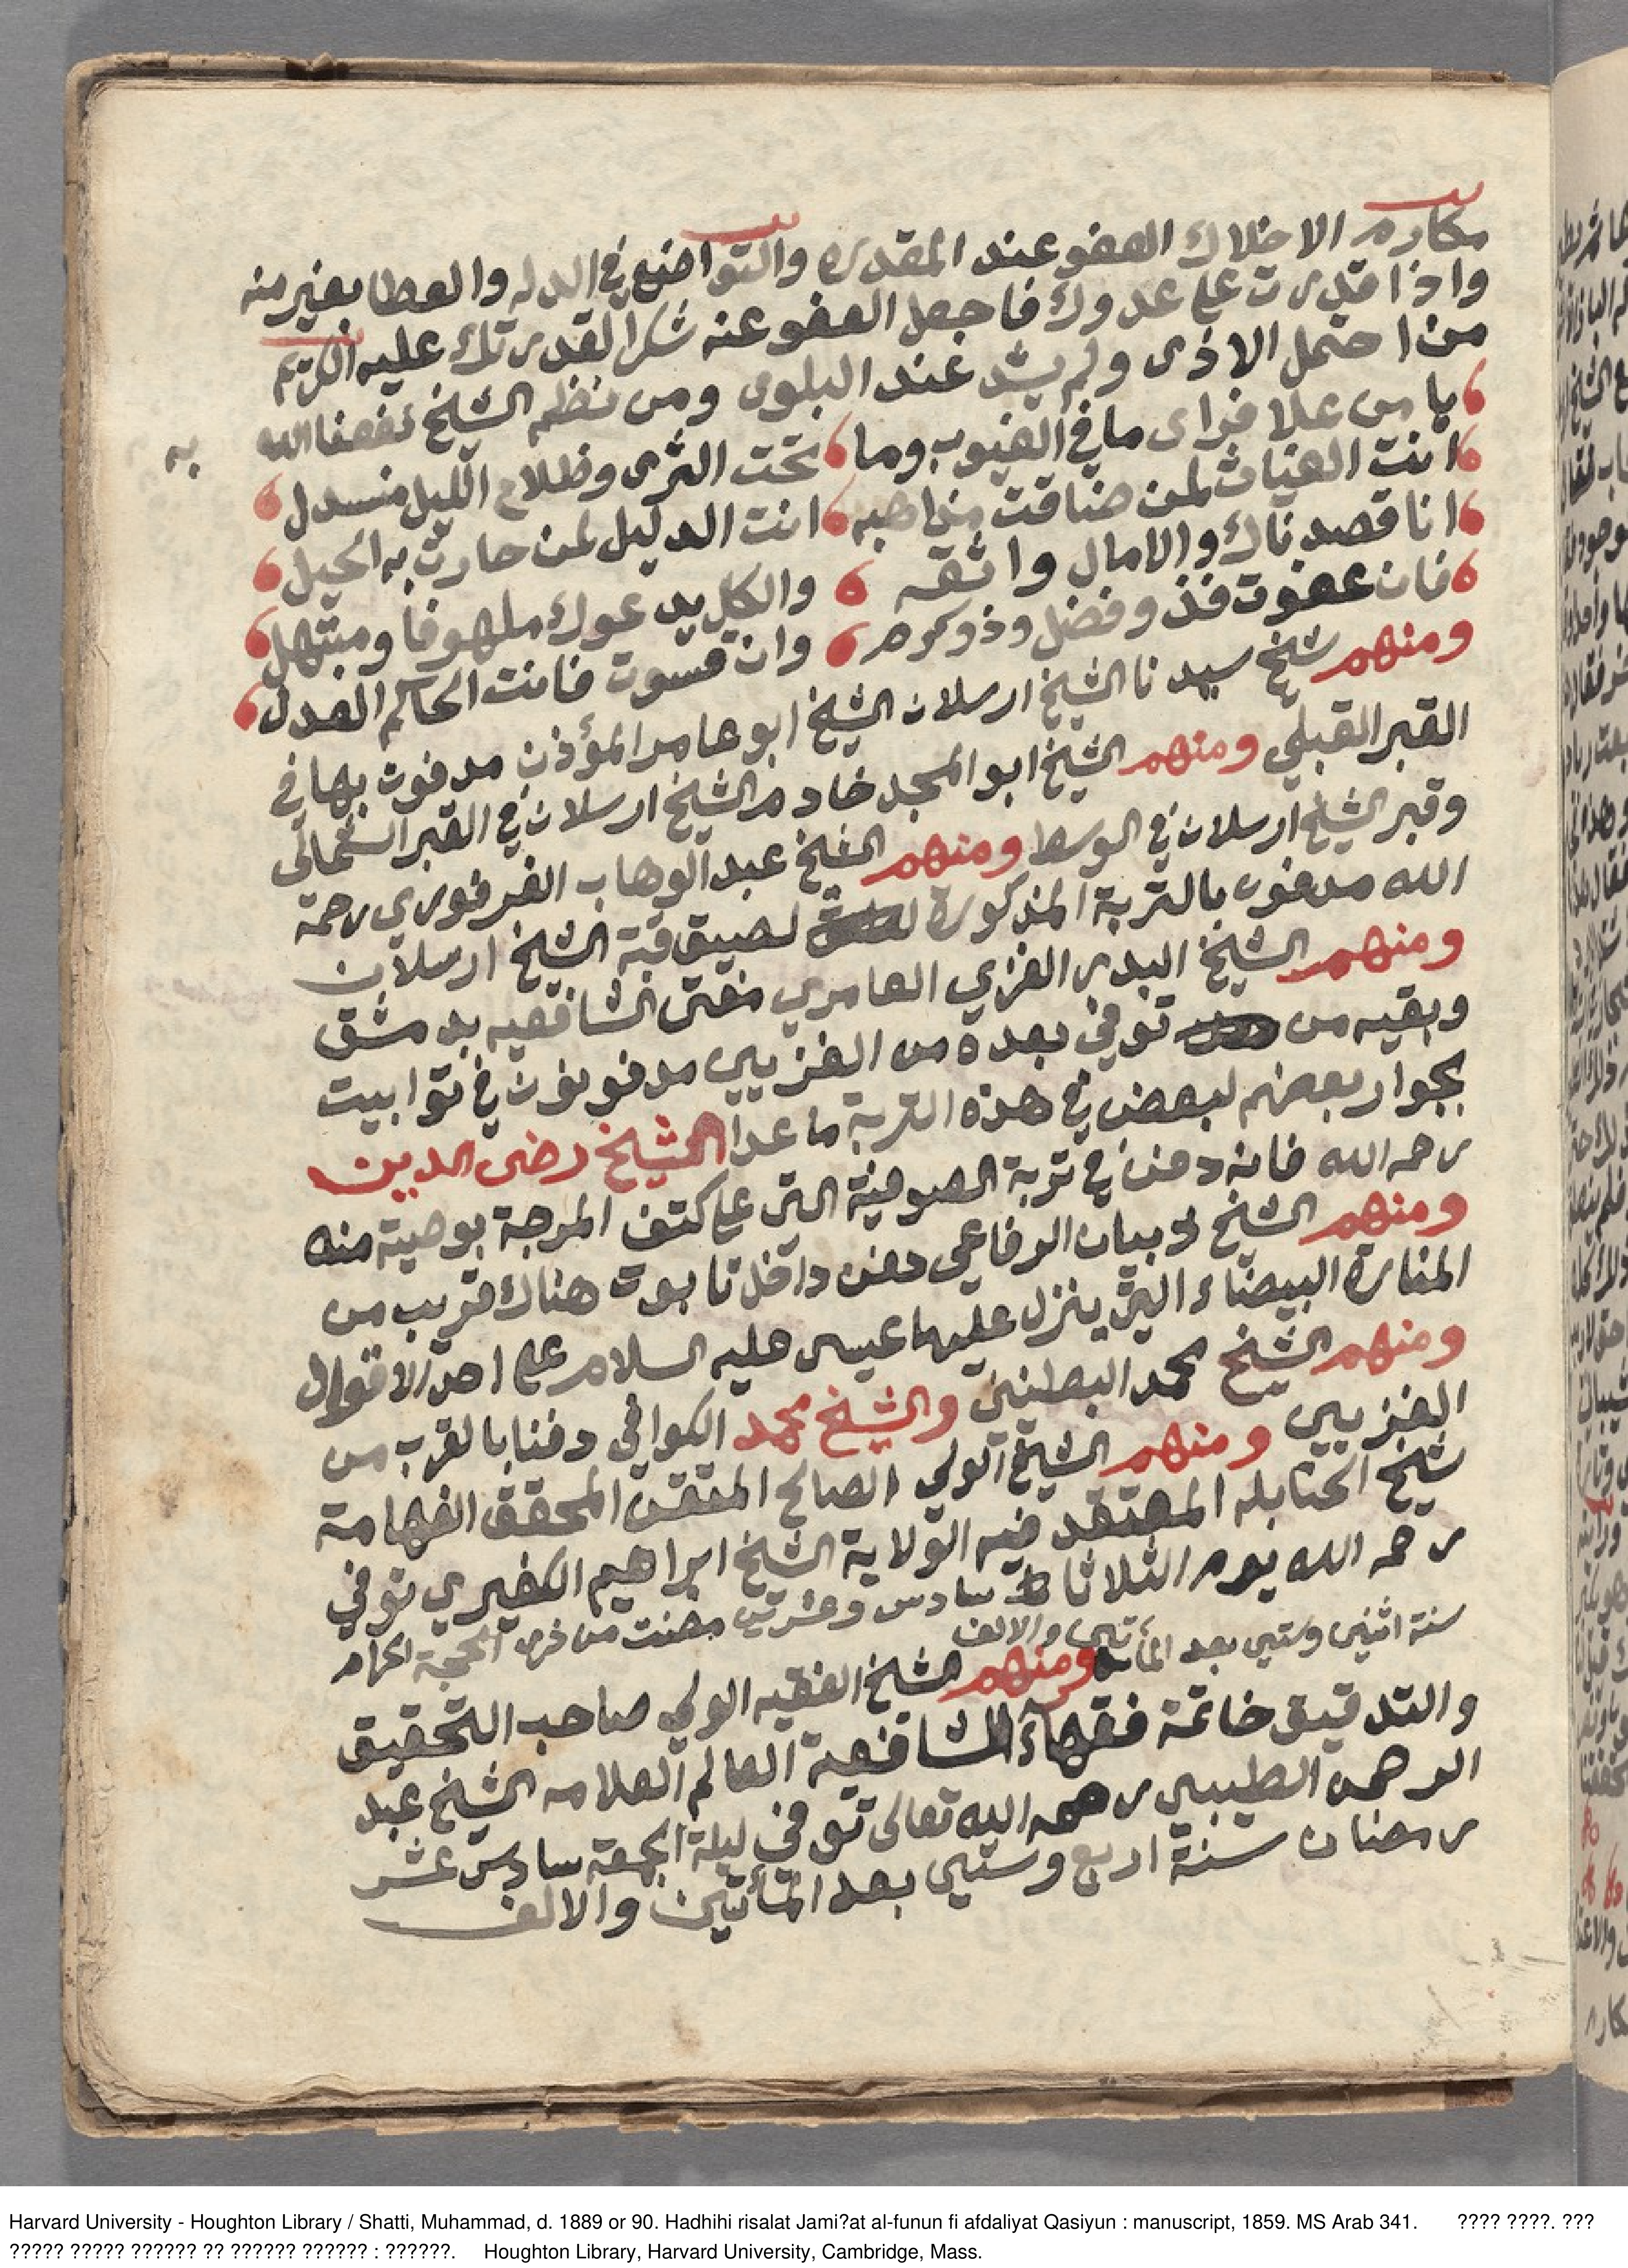 مكارم الاخلاق العفو عند المقدرة والتواضع في الدله والعطا بغير منه
واذا قدرت على عدوك فاجعل العفو عنه شكرا لقدرتك عليه الكريم
من احتمل الاذى ولم يشد عند البلوى ومن نظم الشيخ نفعنا الله به
يا من علا فراى ما في الغيوب وما تحت الثرى وظلام الليل منسدل
انت الغياث لمن ضاقت مذاهبه انت الدليل لمن حارت به الحيل
انا قصدناك والامال واثقه والكل يدعوك ملهوفا ومبتهل
فان عفوت فذو فضل وذو كرم وان قسوت فانت الحاكم العدل
ومنهم شيخ سيدنا الشيخ ارسلان الشيخ ابو عامر المؤذن مدفون بها في
القبر القبلي ومنهم الشيخ ابو المجد خادم الشيخ ارسلان في القبر الشمالي
وقبر الشيخ ارسلان في الوسط ومنهم الشيخ عبد الوهاب الفرفوري رحمة
الله مدفون بالتربة المذكورة لصيق قبة الشيخ ارسلان
ومنهم الشيخ البدر الغزي العامري مفتى الشافعيه بدمشق
وبقيه من توفي بعده من الغزيين مدفونون في توابيت
بجوار بعضهم لبعض في هذه التربة ما عدا الشيخ رضى الدين
رحمه الله فانه دفن في تربة الصوفية التى على كتف المرجة بوصية منه
ومنهم الشيخ ذبيان الرفاعي دفن داخل تابوت هناك قريب من
المنارة البيضاء التى ينزل عليها عيسى عليه السلام على احد الاقوال
ومنهم الشيخ محمد البطنيني والشيخ محمد الكوافي دفنا بالقرب من
الغزيين ومنهم الشيخ الولي الصالح المتقن المحقق الفهامة
شيخ الحنابله المعتقد فيه الولاية الشيخ ابراهيم الكفيري توفي
رحمه الله يوم الثلاثا سادس وعشرين مضت من ذي الحجة الحرام
سنة اثنين وستين بعد المأتين والالف
ومنهم الشيخ الفقيه الولي صاحب التحقيق
والتدقيق خاتمة فقهآء الشافعية العالم العلامه الشيخ عبد
الرحمن الطيبي رحمه الله تعالى توفي ليلة الجمعة سادس عشر
رمضان سنة اربع وستين بعد المأتين والالف
Harvard University - Houghton Library / Shatti, Muhammad, d. 1889 or 90. Hadhihi risalat Jami?at al-funun fi afdaliyat Qasiyun : manuscript, 1859. MS Arab 341. ???? ????. ???
????? ????? ?????? ?? ?????? ?????? : ??????. Houghton Library, Harvard University, Cambridge, Mass.